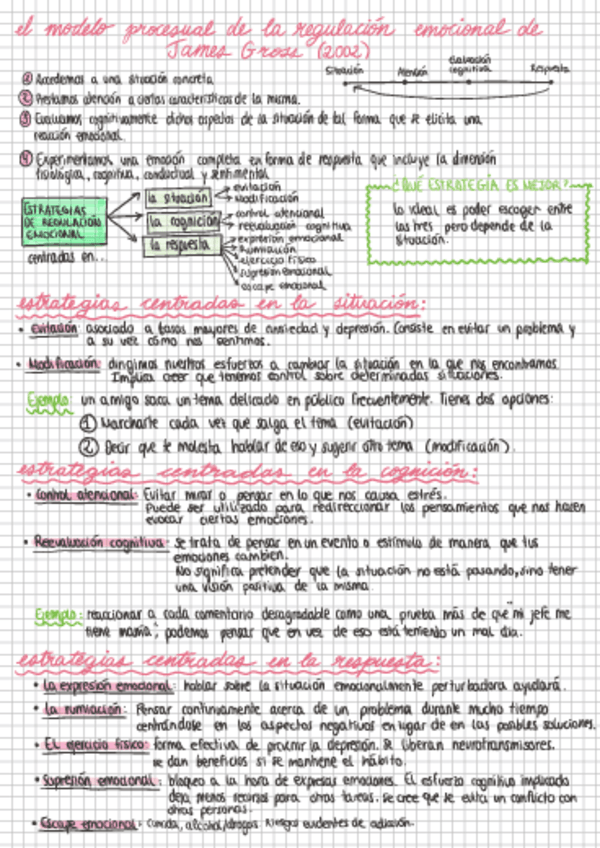 el modelo procesual de la regulación emocional de
James Gross (2002)
Situación Atención Evaluación cognitiva Respuesta
① Accedemos a una situación concreta
② Prestamos atención a ciertas características de la misma.
③ Evaluamos cognitivamente dichos aspectos de la situación de tal forma que se elicita una
reacción emocional.
④ Experimentamos una emoción completa en forma de respuesta que incluye la dimensión
fisiológica, cognitiva, conductual y sentimental
ESTRATEGIAS
DE REGULACIÓN
EMOCIONAL
centradas en...
la situación
evitación
modificación
la cognición
control atencional
reevaluación cognitiva
la respuesta
expresión emocional
rumiación
ejercicio físico
supresión emocional
escape emocional
¿QUÉ ESTRATEGIA ES MEJOR?
Lo ideal es poder escoger entre
las tres, pero depende de la
situación.
estrategias centradas en la situación:
• Evitación: asociado a tasas mayores de ansiedad y depresión. Consiste en evitar un problema y
a su vez cómo nos sentimos.
• Modificación: dirigimos nuestros esfuerzos a cambiar la situación en la que nos encontramos.
Implica creer que tenemos control sobre determinadas situaciones.
Ejemplo: un amigo saca un tema delicado en público frecuentemente. Tienes dos opciones:
① Marcharte cada vez que salga el tema (evitación)
② Decir que te molesta hablar de eso y sugerir otro tema (modificación).
estrategias centradas en la cognición:
• Control atencional: Evitar mirar o pensar en lo que nos causa estrés.
Puede ser utilizado para redireccionar los pensamientos que nos hacen
evocar ciertas emociones.
• Reevaluación cognitiva: se trata de pensar en un evento o estímulo de manera que tus
emociones cambien.
No significa pretender que la situación no está pasando, sino tener
una visión positiva de la misma.
Ejemplo: reaccionar a cada comentario desagradable como una prueba más de que mi jefe me
tiene manía, podemos pensar que en vez de eso está teniendo un mal día.
estrategias centradas en la respuesta:
• La expresión emocional: hablar sobre la situación emocionalmente perturbadora ayudará.
• La rumiación: Pensar continuamente acerca de un problema durante mucho tiempo
centrándose en los aspectos negativos en lugar de en las posibles soluciones.
• El ejercicio físico: forma efectiva de prevenir la depresión. Se liberan neurotransmisores.
se dan beneficios si se mantiene el hábito.
• Supresión emocional: bloqueo a la hora de expresar emociones. El esfuerzo cognitivo implicado
deja menos recursos para otras tareas. Se cree que se evita un conflicto con
otras personas.
• Escape emocional: Comida, alcohol/drogas. Riesgos evidentes de adicción.